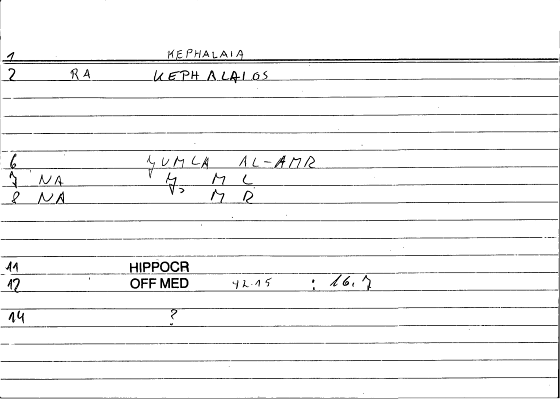 1 KEPHALAIA
2 RA KEPHALAIOS
6 ǦUMLA AL-AMR
7 NA Ǧ, M L
8 NA M R
11 HIPPOCR
12 OFF MED 42.15 : 16.7
14 ?